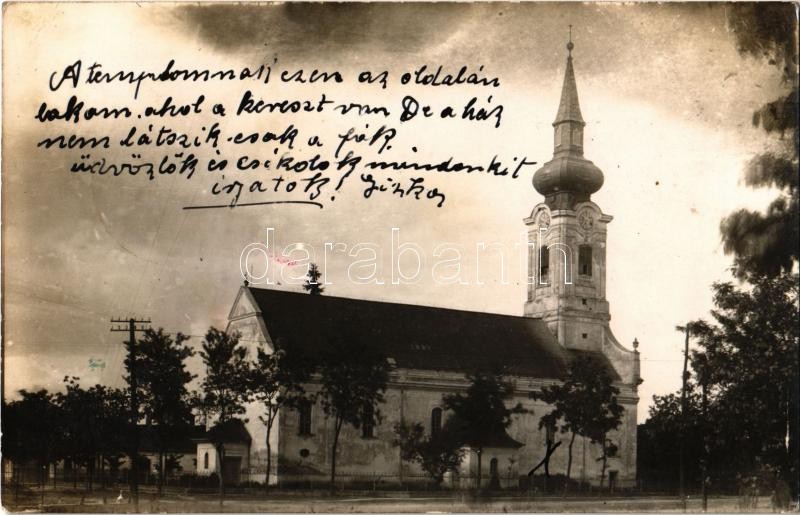 A templomnak ezen az oldalán
lakom. ahol a kereszt van De a ház
nem látszik csak a fák.
üdvözlök és csókolok mindenkit
irjatok! Gizka
darabanth